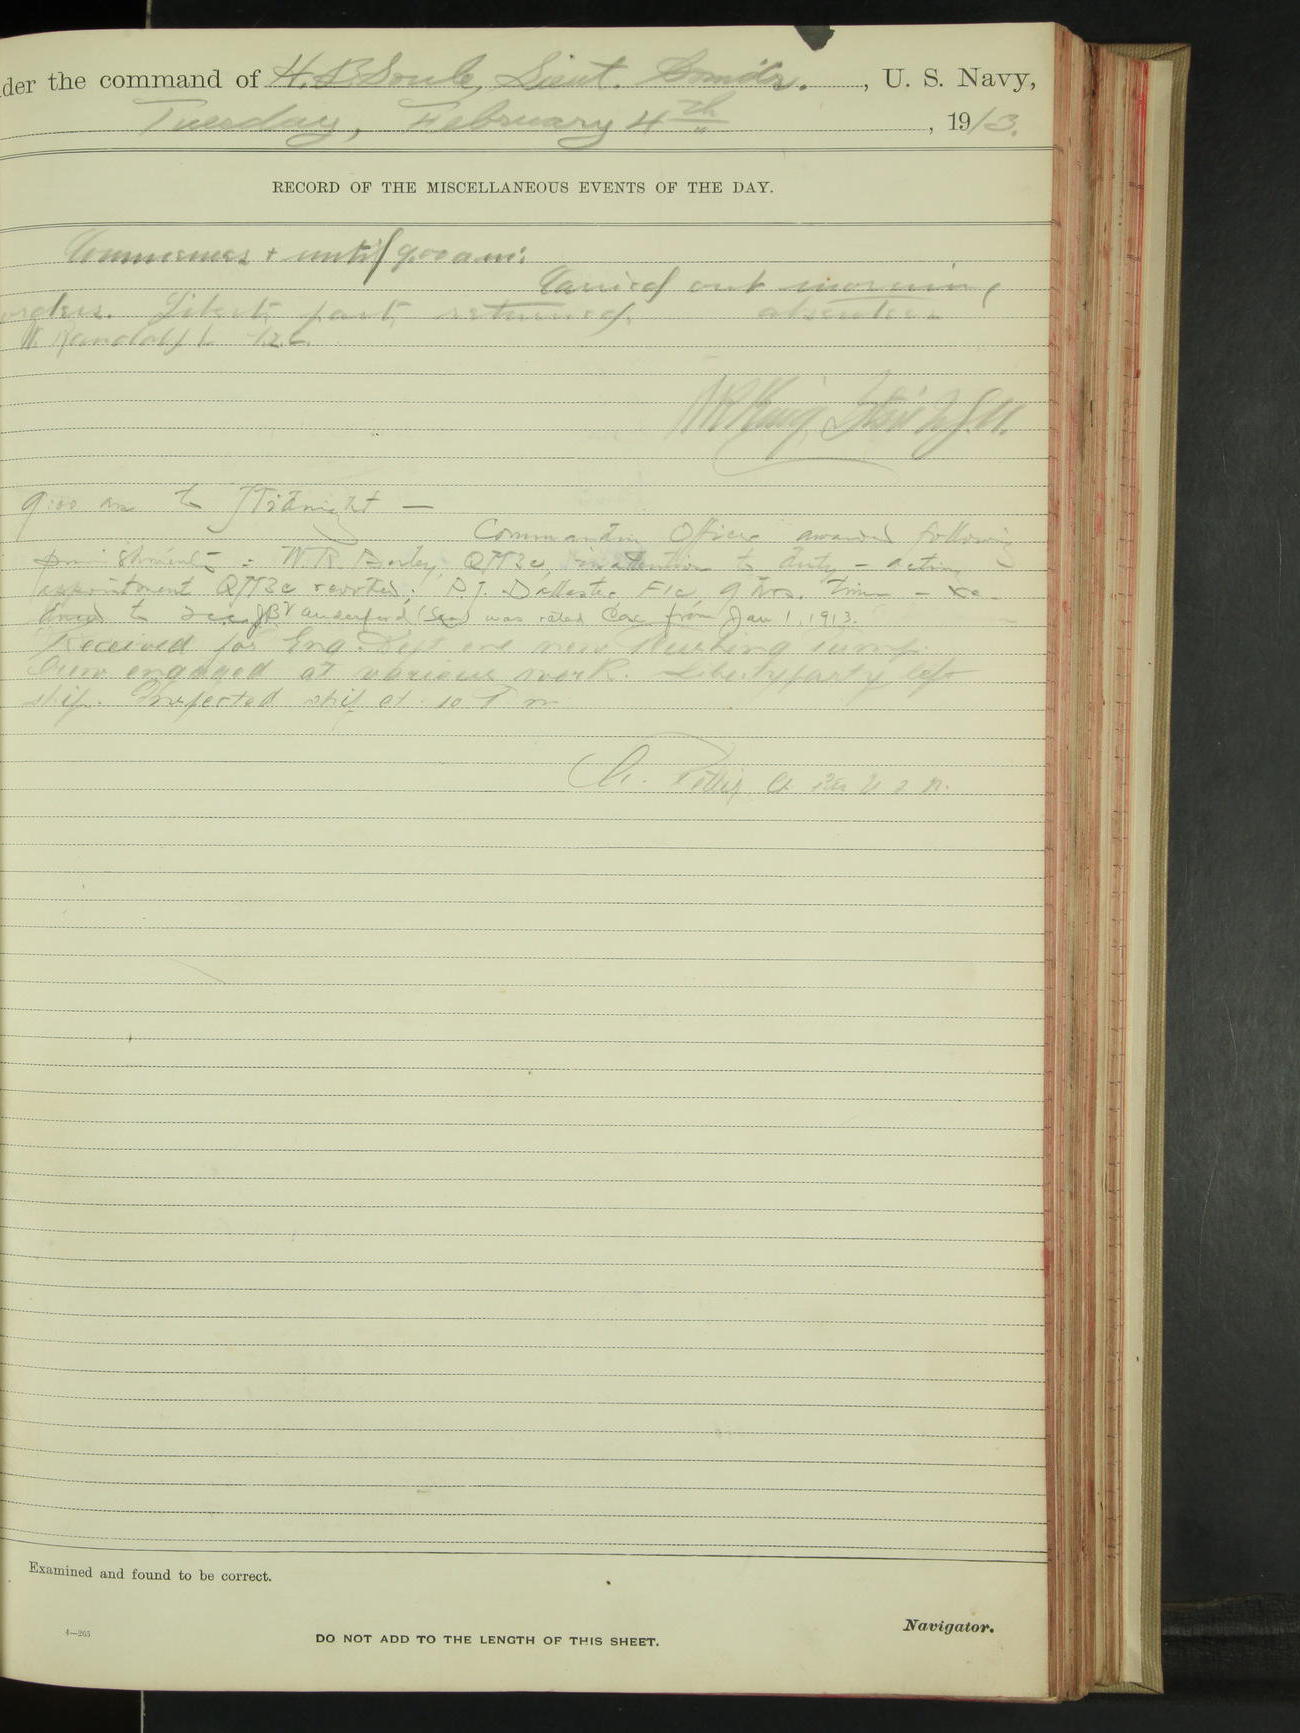 der the command of H. B. Soule, Lieut. Comdr., U. S. Navy,
Tuesday, February 4th, 1913.
RECORD OF THE MISCELLANEOUS EVENTS OF THE DAY.
Commences + until 9.00 a.m:
Carried out morning
orders. Liberty party returned. absentees
W. Randolph
9:00 am to Midnight —
Commanding Officer awarded following
punishments : W. R. QM3c, inattention to duty — acting
appointment QM3c revoked; F1c, 9 hrs. time — re-
duced to J B Vanderford (Sea) was rated Cox from Jan 1, 1913.
Received for Eng. Dept one new pump.
Crew engaged at various work. Liberty party left
ship. Inspected ship at 10 P m
U S N.
Examined and found to be correct.
Navigator.
4—265
DO NOT ADD TO THE LENGTH OF THIS SHEET.